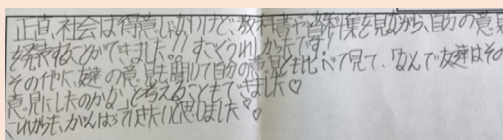 正直、社会は得意じゃないけど、教科書や資料集を見ながら、自分の意見
を発表することができました!!すごくうれしかったです。
その他に友達の意見も聞いて自分の意見とも比べて見て、なんで友達はその
意見にしたのかな と考えることもできました♡
これからも、がんばっていきたいと思いました♡